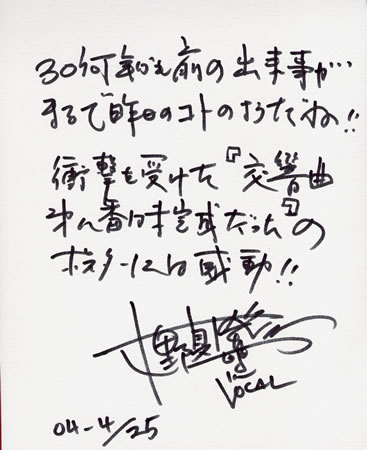 30何年か前の出来事が…
まるで昨日のコトのようだね!!
衝撃を受けた『交響曲
第八番は未完成だった』の
ポスターにも感動!!
VOCAL
04-4/25